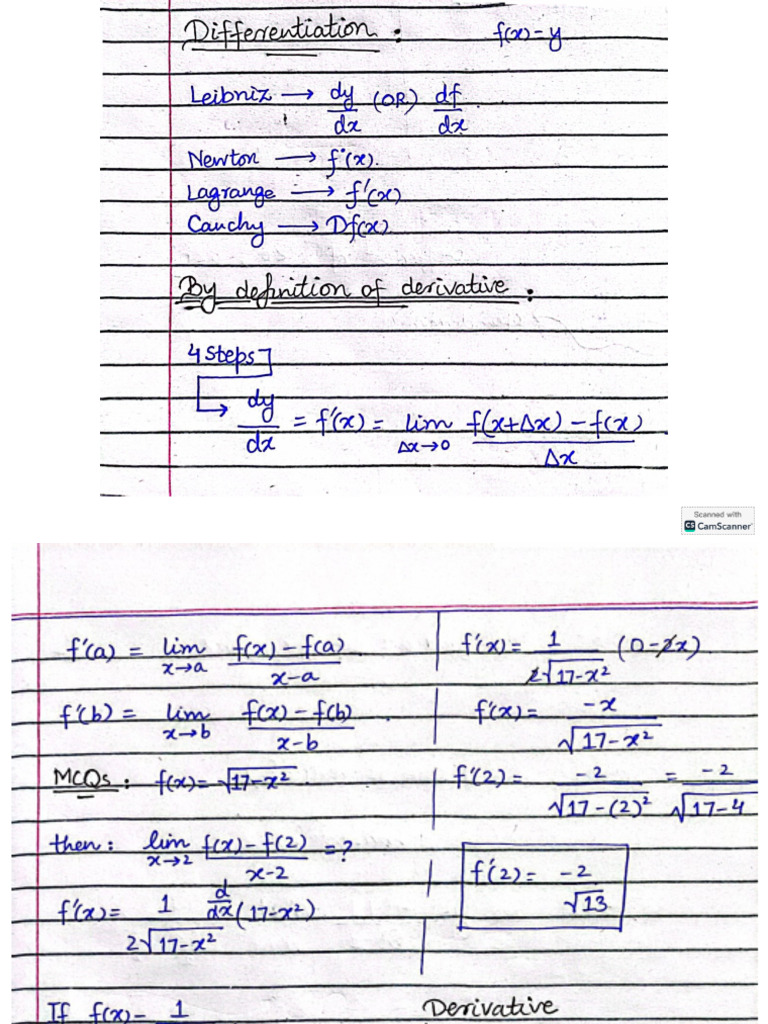 Differentiation : f(x) - y
Leibniz → dy/dx (OR) df/dx
Newton → f˙(x).
Lagrange → f'(x)
Cauchy → Df(x)
By definition of derivative :
4 steps
dy/dx = f'(x) = lim Δx→0 f(x+Δx) - f(x) / Δx
Scanned with
CS CamScanner
f'(a) = lim x→a f(x) - f(a) / x-a
f'(b) = lim x→b f(x) - f(b) / x-b
MCQs : f(x) = √17-x²
then : lim x→2 f(x) - f(2) / x-2 = ?
f'(x) = 1 / 2√17-x² d/dx (17-x²)
f'(x) = 1 / 2√17-x² (0-2x)
f'(x) = -x / √17-x²
f'(2) = -2 / √17-(2)² = -2 / √17-4
f'(2) = -2 / √13
If f(x) - 1
Derivative